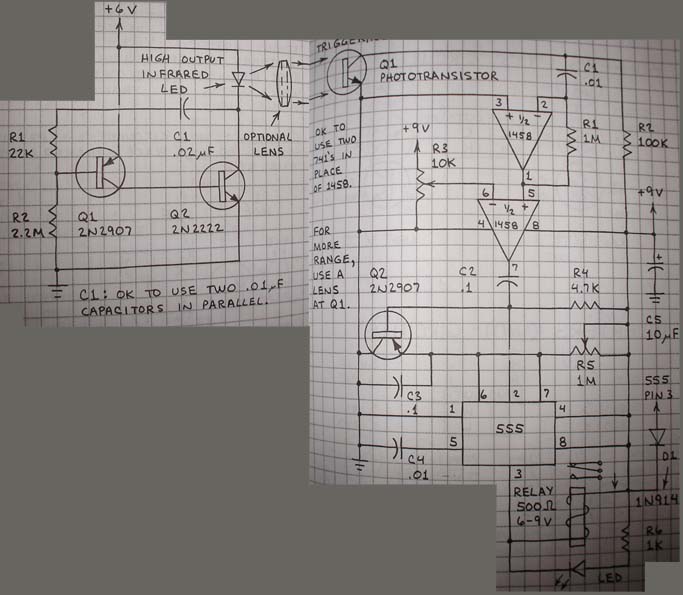 +6V
HIGH OUTPUT
INFRARED
LED
C1
.02µF
OPTIONAL
LENS
R1
22K
R2
2.2M
Q1
2N2907
Q2
2N2222
C1: OK TO USE TWO .01µF
CAPACITORS IN PARALLEL.
Q1
PHOTOTRANSISTOR
C1
.01
3
2
+ ½ -
1458
1
R1
1M
R2
100K
OK TO
USE TWO
741'S IN
PLACE
OF 1458.
+9V
R3
10K
6
5
- ½ +
4
1458
8
7
+9V
+
FOR
MORE
RANGE,
USE A
LENS
AT Q1.
Q2
2N2907
C2
.1
R4
4.7K
C5
10µF
R5
1M
C3
.1
6
2
7
1
555
4
5
8
3
C4
.01
555
PIN 3
D1
1N914
RELAY
500Ω
6-9V
R6
1K
LED